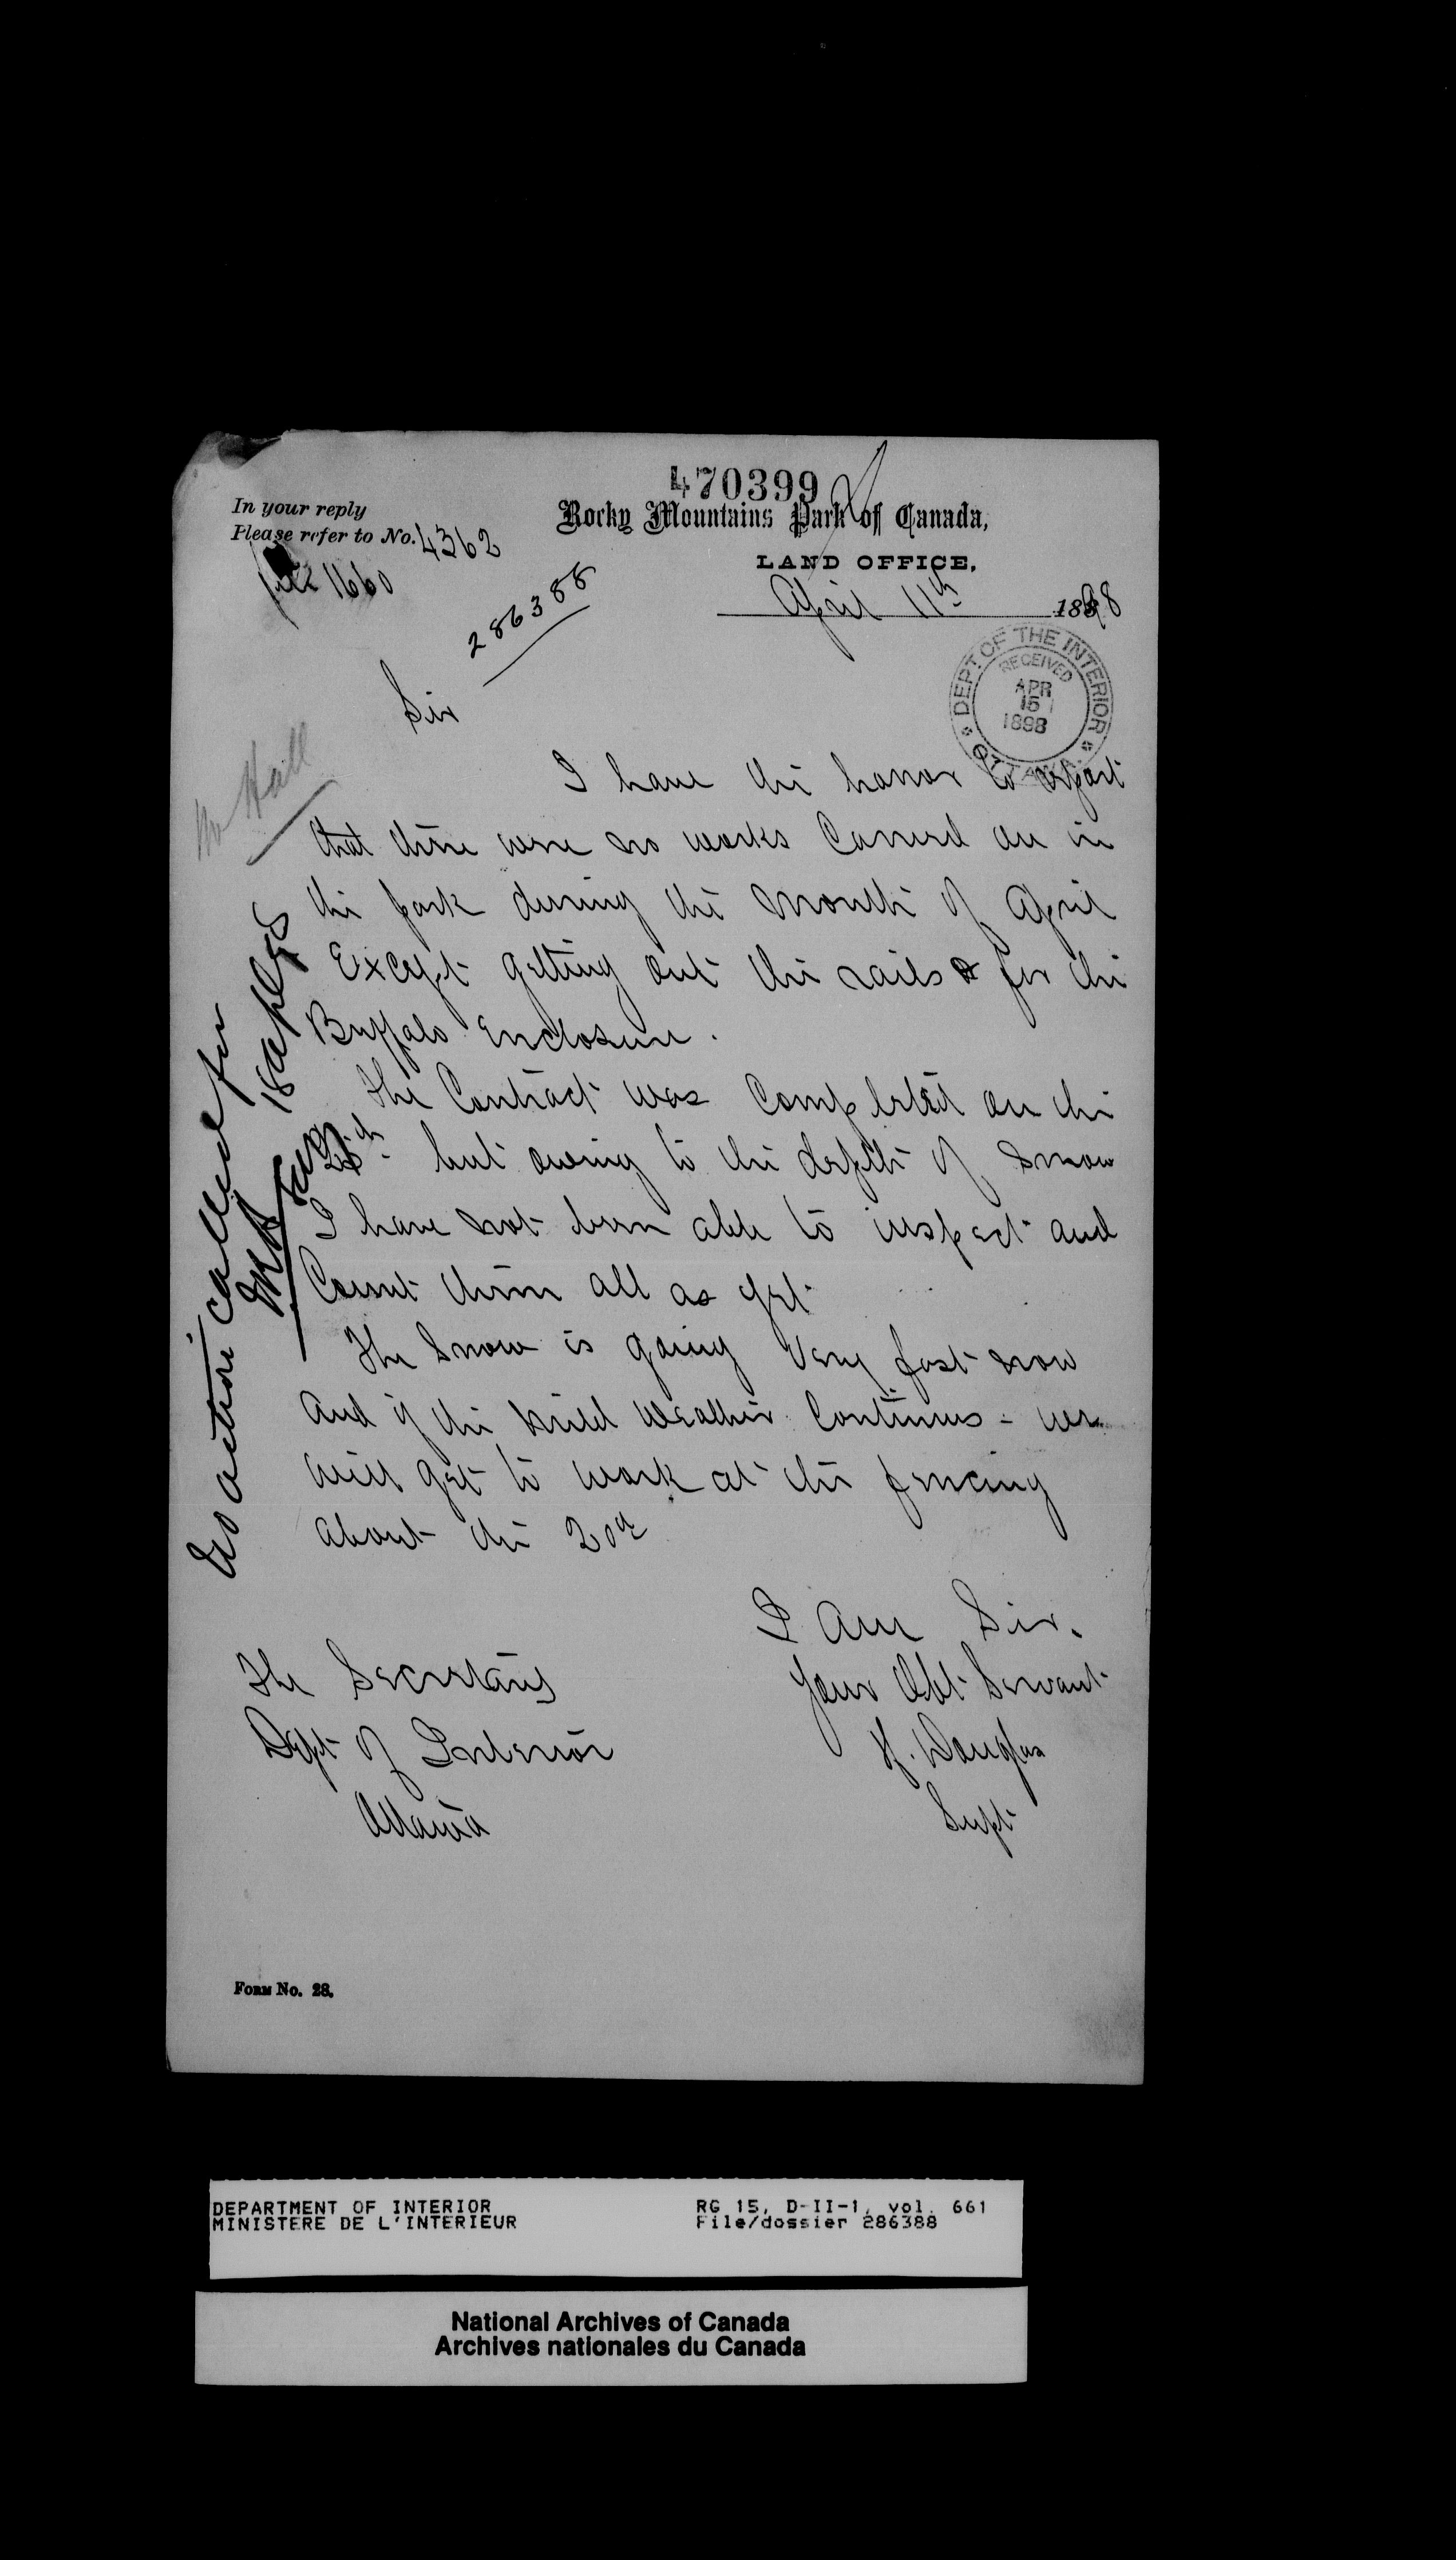 470399
In your reply
Please refer to No. 4362
1660
Rocky Mountains Park of Canada,
LAND OFFICE,
April 11th 1898
286388
DEPT. OF THE INTERIOR
RECEIVED
APR
15
1898
OTTAWA
Sir
Mr Hall
I have the honor to report
that there were no works Carried on in
the park during the month of April
Except getting out the rails for the
Buffalo Enclosure.
The Contract was Completed on the
but owing to the depth of snow
I have not been able to inspect and
Count them all as yet
The Snow is going Very fast now
and if the mild weather Continues - we
will get to work at the fencing
about the 20th
I am Sir.
Your Obt Servant
H. Douglas
Supt
The Secretary
Dept of Interior
Ottawa
No action called for
18 apl 98
Form No. 28.
DEPARTMENT OF INTERIOR
MINISTERE DE L'INTERIEUR
RG 15, D-II-1, vol. 661
File/dossier 286388
National Archives of Canada
Archives nationales du Canada